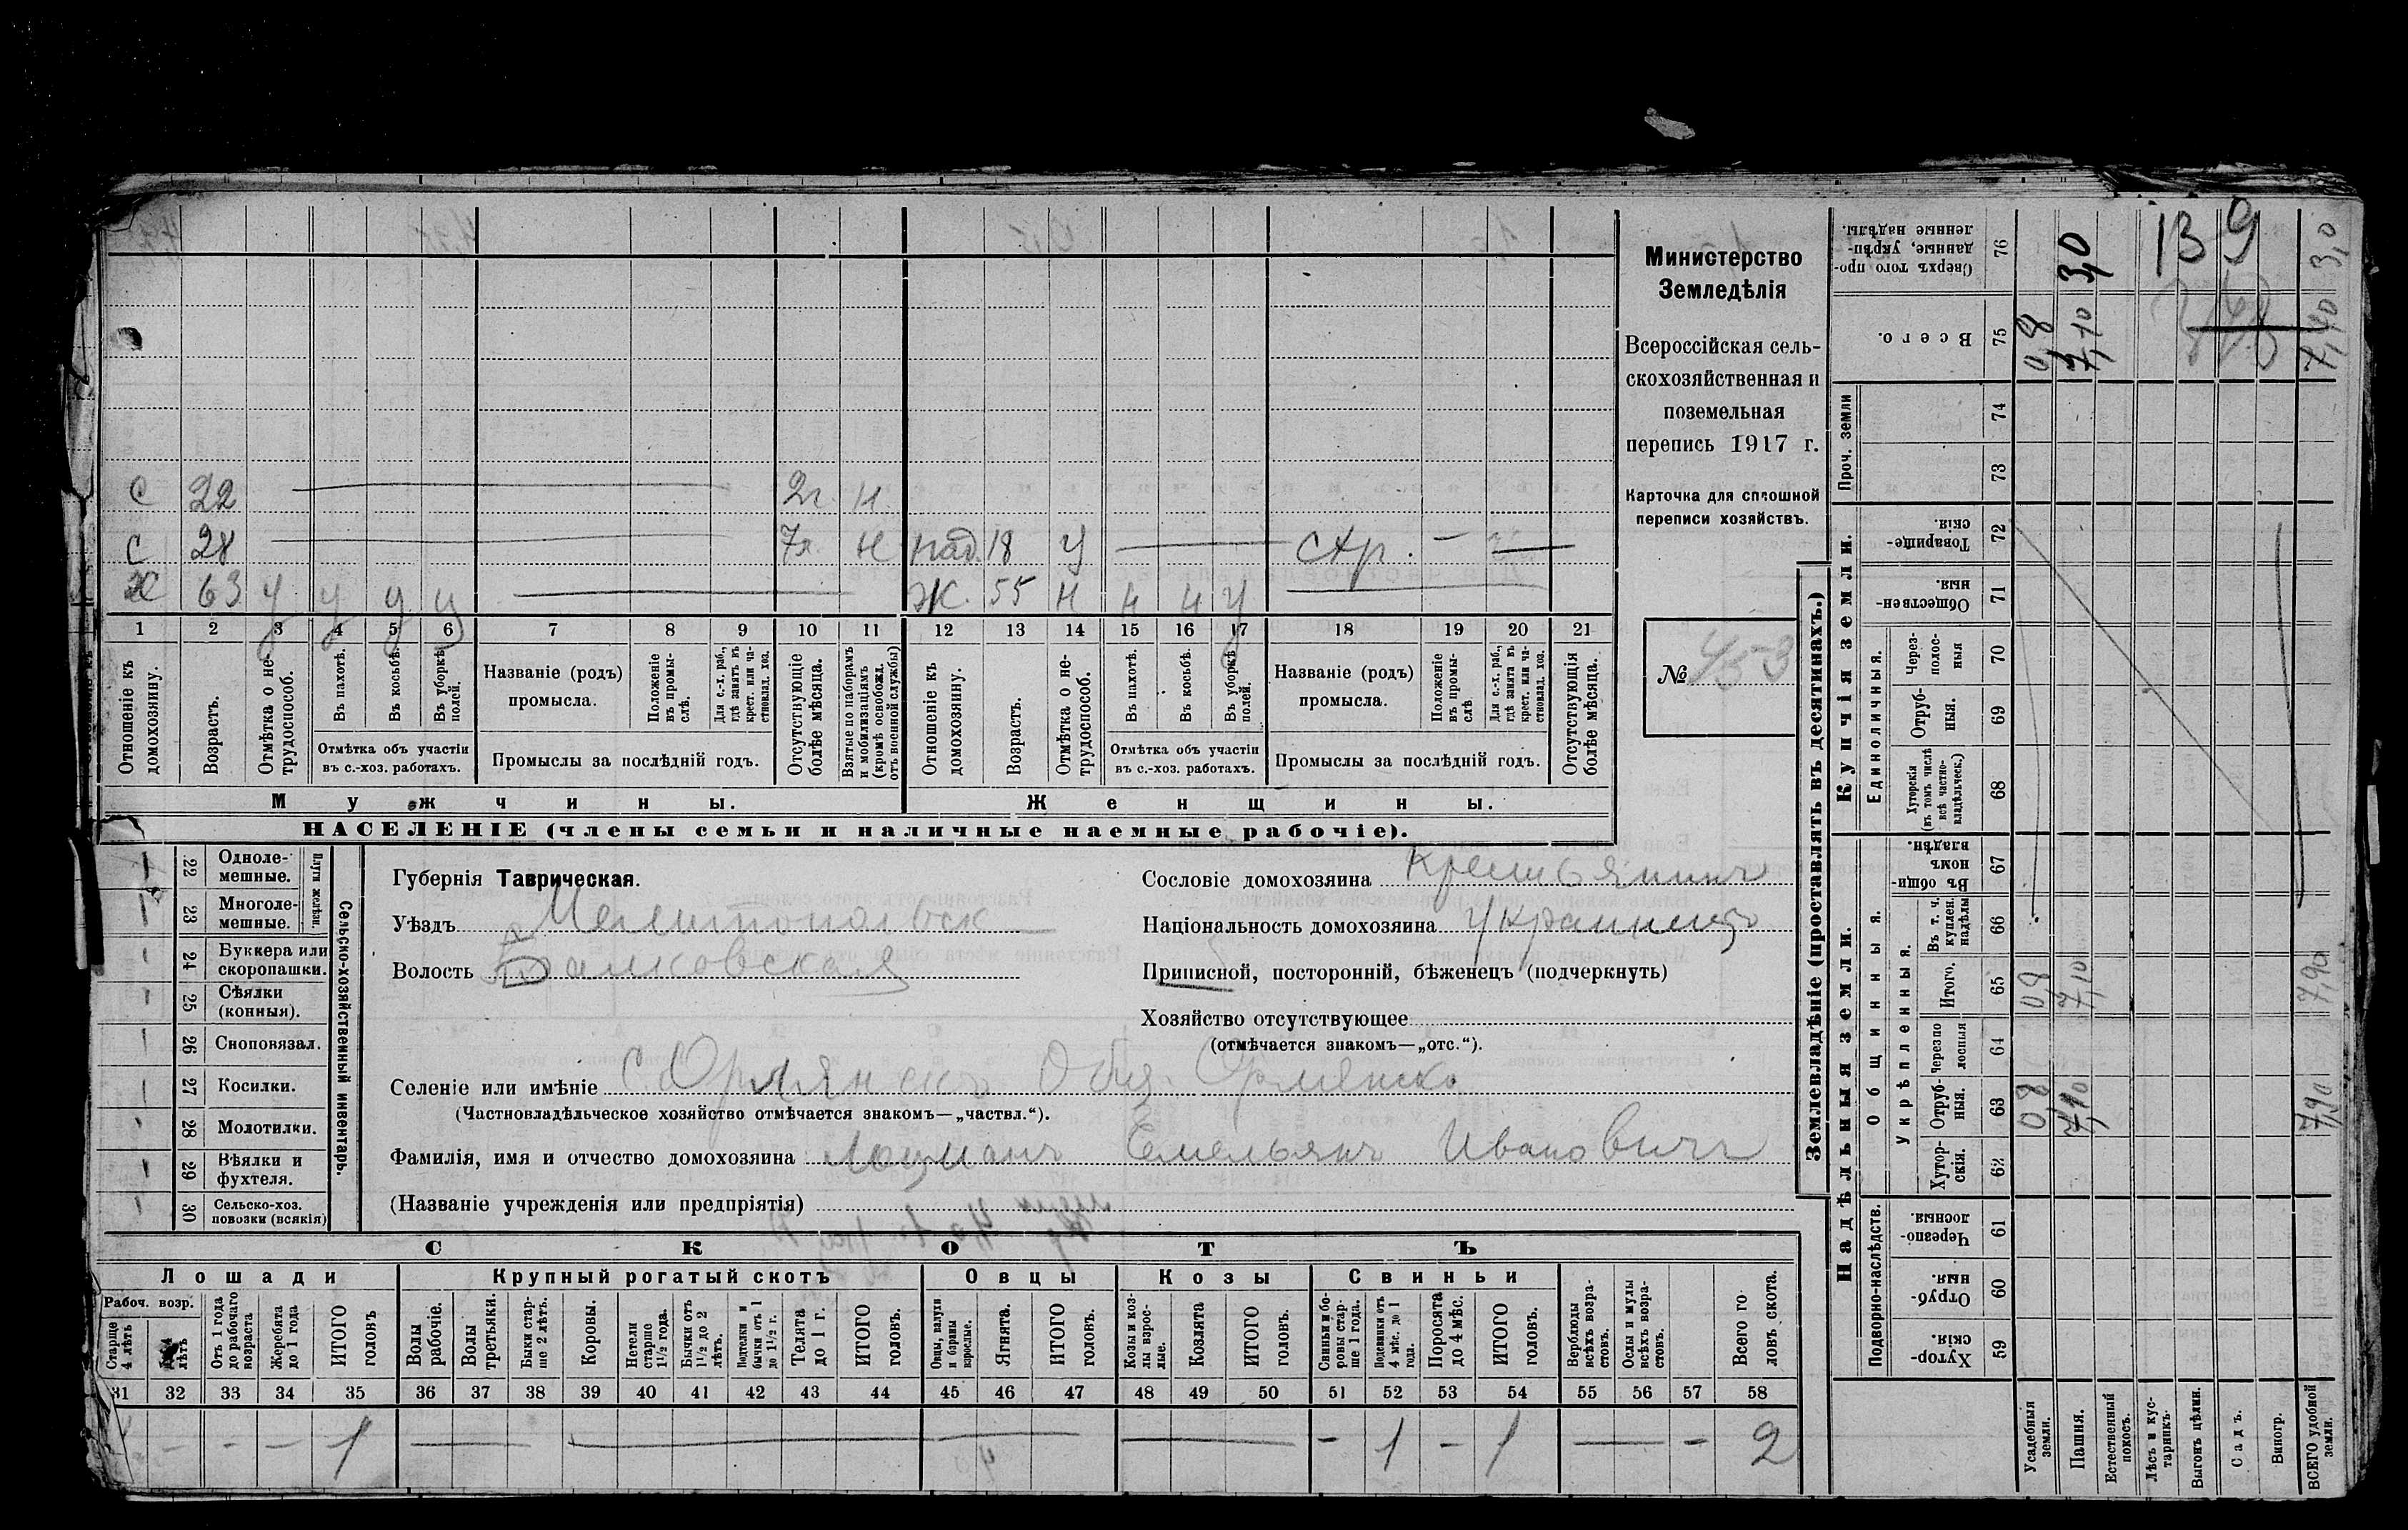 Министерство
Земледѣлія
Всероссійская сель-
скохозяйственная и
поземельная
перепись 1917 г.
Карточка для сплошной
переписи хозяйствъ.
№ 453
139
С 22 2г. Н
С 28 7л. Н пад. 18 У — стр. — —
Х 63 У У У У Ж. 55 Н Н Н У
1 2 3 4 5 6 7 8 9 10 11 12 13 14 15 16 17 18 19 20 21
Отношеніе къ домохозяину.
Возрастъ.
Отмѣтка о не-трудоспособ.
Въ пахотѣ.
Въ косьбѣ.
Въ уборкѣ полей.
Отмѣтка объ участіи
въ с.-хоз. работахъ.
Названіе (родъ)
промысла.
Положеніе въ промы-слѣ.
Для с.-х. раб., гдѣ занятъ въ крест. или ча-стновлад. хоз.
Промыслы за послѣдній годъ.
Отсутствующіе болѣе мѣсяца.
Взятые по наборамъ и мобилизаціямъ (кромѣ освобожд. отъ военной службы)
Отношеніе къ домохозяину.
Возрастъ.
Отмѣтка о не-трудоспособ.
Въ пахотѣ.
Въ косьбѣ.
Въ уборкѣ полей.
Отмѣтка объ участіи
въ с.-хоз. работахъ.
Названіе (родъ)
промысла.
Положеніе въ промы-слѣ
Для с.-х. раб., гдѣ занята въ крест. или ча-стновлад. хоз.
Промыслы за послѣдній годъ.
Отсутствующія болѣе мѣсяца.
Мужчины. Женщины.
НАСЕЛЕНІЕ (члены семьи и наличные наемные рабочіе).
Сельско-хозяйственный инвентарь.
Плуги желѣзн.
22 Одноле-мешные.
23 Многоле-мешные.
24 Буккера или скоропашки.
25 Сѣялки (конныя).
26 Сноповязал.
27 Косилки.
28 Молотилки.
29 Вѣялки и фухтеля.
30 Сельско-хоз. повозки (всякія)
Губернія Таврическая.
Уѣздъ Мелитопольск
Волость Балковская
Сословіе домохозяина Крестьянинъ
Національность домохозяина Украинецъ
Приписной, посторонній, бѣженецъ (подчеркнуть)
Хозяйство отсутствующее
(отмѣчается знакомъ—„отс.“).
Селеніе или имѣніе С. Орлянскъ Общ. Орлянско
(Частновладѣльческое хозяйство отмѣчается знакомъ—„частвл.“).
Фамилія, имя и отчество домохозяина Лоцманъ Емельянъ Ивановичъ
(Названіе учрежденія или предпріятія)
СКОТЪ
Лошади Крупный рогатый скотъ Овцы Козы Свиньи
Рабоч. возр.
Старше 4 лѣтъ
До 4 лѣтъ
Отъ 1 года до рабочаго возраста
Жеребята до 1 года
ИТОГО головъ
Волы рабочіе.
Волы третьяки.
Быки стар-ше 2 лѣтъ.
Коровы.
Нетели старше 1½ года.
Бычки отъ 1½ до 2 лѣтъ.
Подтелки и бычки отъ 1 до 1½ г.
Телята до 1 г.
ИТОГО головъ.
Овцы, валухи и бараны взрослые.
Ягнята.
ИТОГО головъ.
Козы и коз-лы взрос-лые.
Козлята
ИТОГО головъ.
Свиньи и бо-ровы стар-ше 1 года.
Подсвинки отъ 4 мѣс. до 1 года.
Поросята до 4 мѣс.
ИТОГО головъ.
Верблюды всѣхъ возра-стовъ.
Ослы и мулы всѣхъ возра-стовъ.
Всего го-ловъ скота.
31 32 33 34 35 36 37 38 39 40 41 42 43 44 45 46 47 48 49 50 51 52 53 54 55 56 57 58
— — — 1 — — — — — 1 — 1 — — 2
Землевладѣніе (проставлять въ десятинахъ.)
Надѣльныя земли. Купчія земли.
Подворно-наслѣдств. Общинныя. Единоличныя. Проч. земли
Укрѣпленныя.
59 Хутор-скія.
60 Отруб-ныя.
61 Черезпо-лосныя.
62 Хутор-скія.
63 Отруб-ныя. 0,8 7,10 7,90
64 черезпо лосныя
65 Итого. 0,8 7,10 7,90
66 Въ т. ч. куплен. надѣлы
67 Въ общи-номъ владѣн.
68 Хуторскія (въ томъ числѣ всѣ частно-владѣльческ.)
69 Отруб-ныя.
70 Через-полос-ныя
71 Обществен-ныя.
72 Товарище-скія.
73
74
75 Всего. 0,8 7,10
76 Сверхъ того про-данные, укрѣп-ленные надѣлы. 3,0 3,0
Усадебныя земли.
Пашня.
Естественный покосъ.
Лѣсъ и кус-тарникъ.
Выгонъ цѣлин.
Садъ.
Виногр.
ВСЕГО удобной земли.